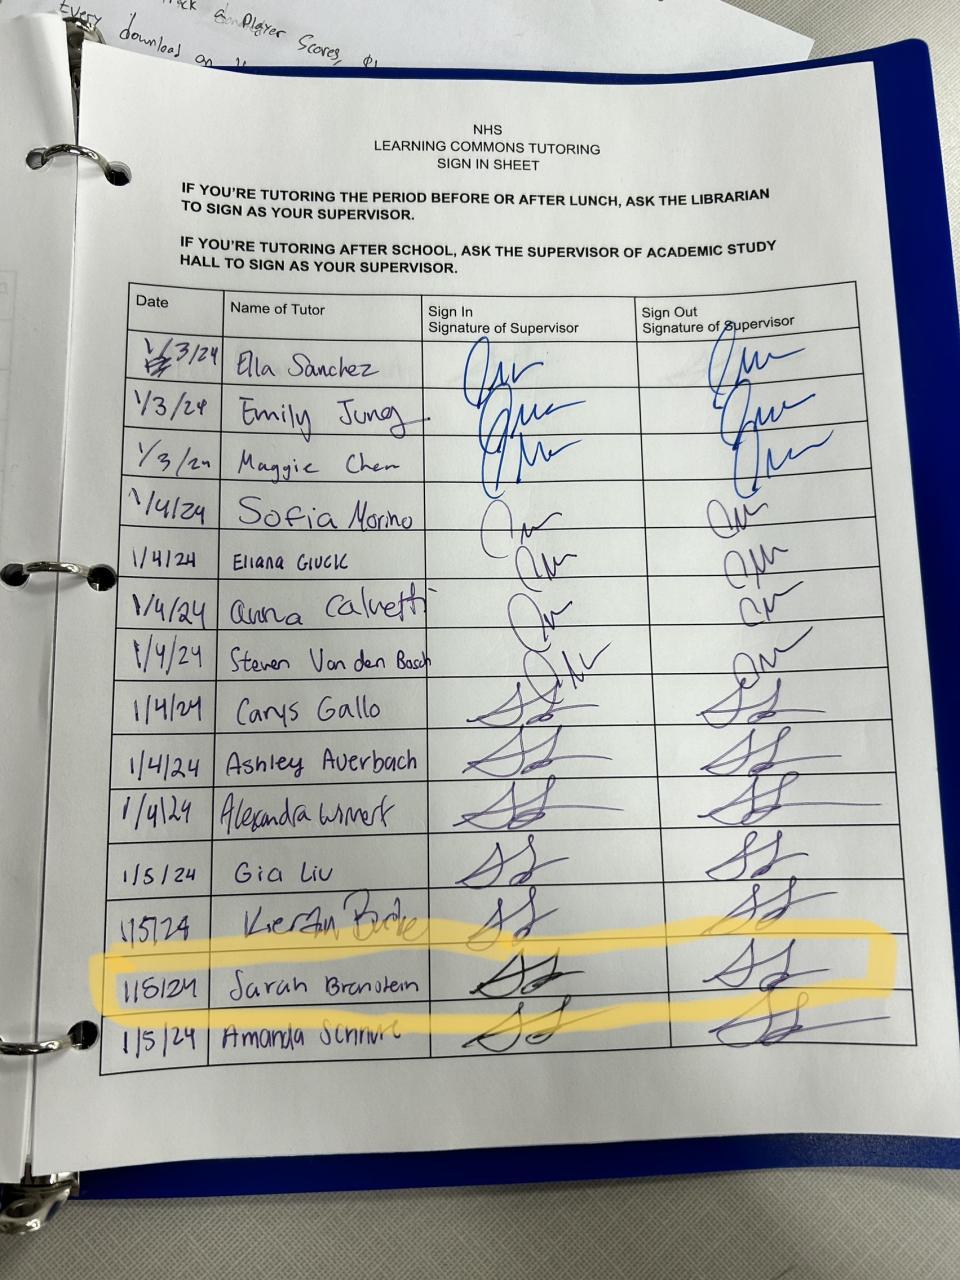 a Player Scores,
Every download on
NHS
LEARNING COMMONS TUTORING
SIGN IN SHEET
IF YOU'RE TUTORING THE PERIOD BEFORE OR AFTER LUNCH, ASK THE LIBRARIAN
TO SIGN AS YOUR SUPERVISOR.
IF YOU'RE TUTORING AFTER SCHOOL, ASK THE SUPERVISOR OF ACADEMIC STUDY
HALL TO SIGN AS YOUR SUPERVISOR.
Date Name of Tutor Sign In Signature of Supervisor Sign Out Signature of Supervisor
1/3/24 Ella Sanchez
1/3/24 Emily Jung
1/3/24 Maggie Chen
1/4/24 Sofia Morino
1/4/24 Eliana Gluck
1/4/24 Anna Calvetti
1/4/24 Steven Van den Bosch
1/4/24 Carys Gallo
1/4/24 Ashley Averbach
1/4/24 Alexandra
1/5/24 Gia Liu
1/5/24 Kieran Burke
1/5/24 Sarah Bronstein
1/5/24 Amanda